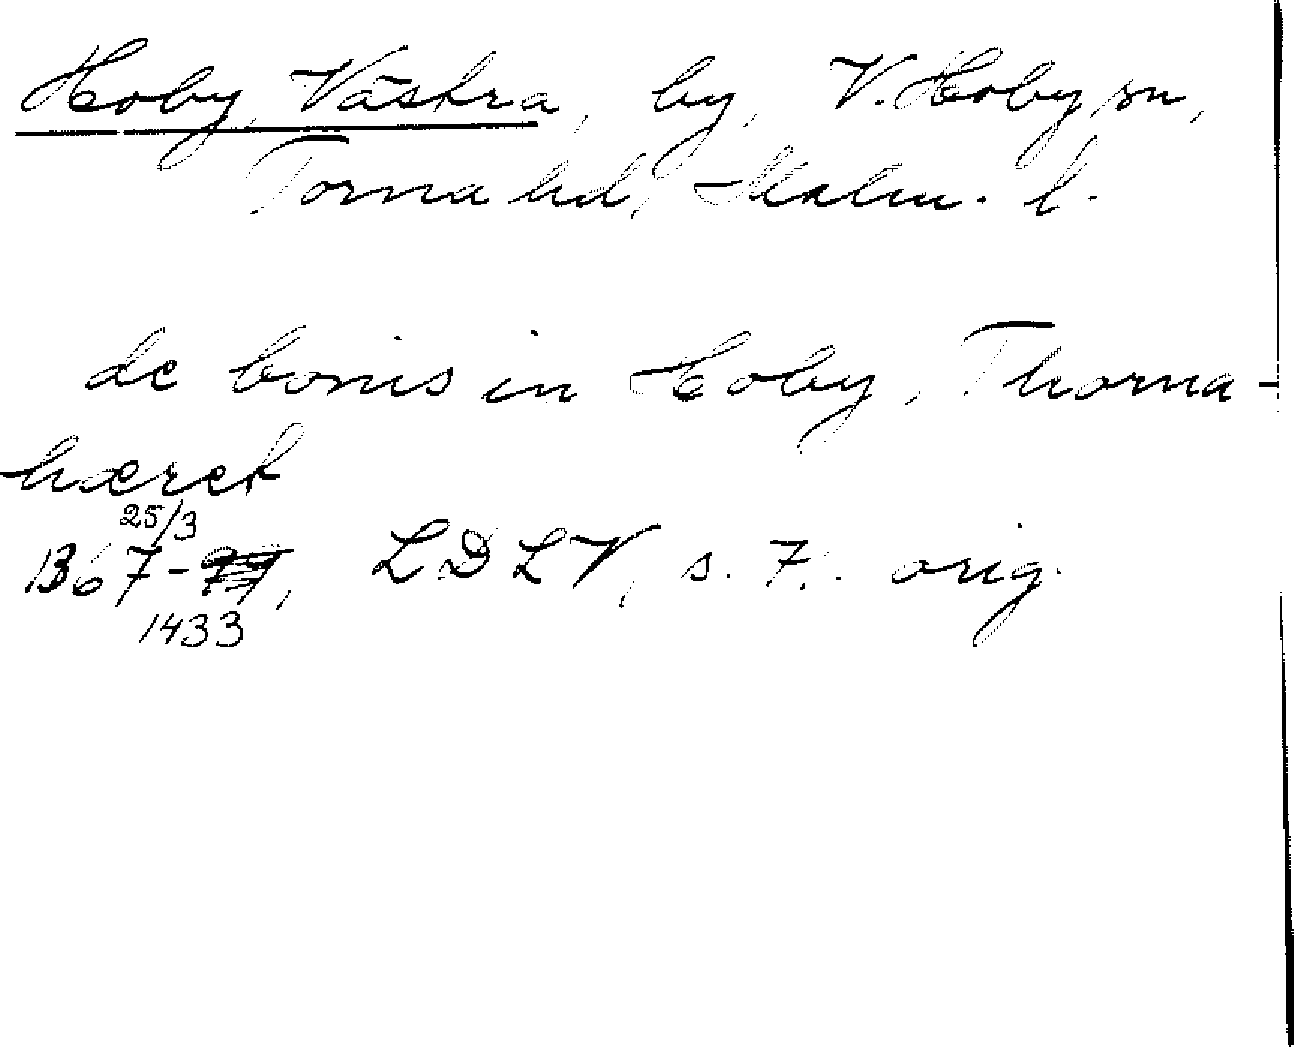 Hoby, Västra, by, V. Hoby sn,
Torna hd, Malm. l.
de bonis in Hoby, Thorna-
hæret
25/3
1367-, LDLV, s. 7. orig.
1433